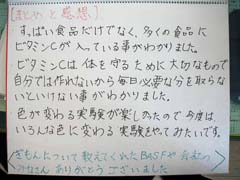 【まとめと感想】
すっぱい食品だけでなく、多くの食品に
ビタミンCが入っている事がわかりました。
ビタミンCは体を守るために大切なもので
自分では作れないから毎日必要な分を取らな
いといけない事がわかりました。
色が変わる実験が楽しかたので今度は
いろんな色に変わる実験をやてみたいです。
ぎもんについて教えてくれたBASFや会社の
みなさんありがとうございました